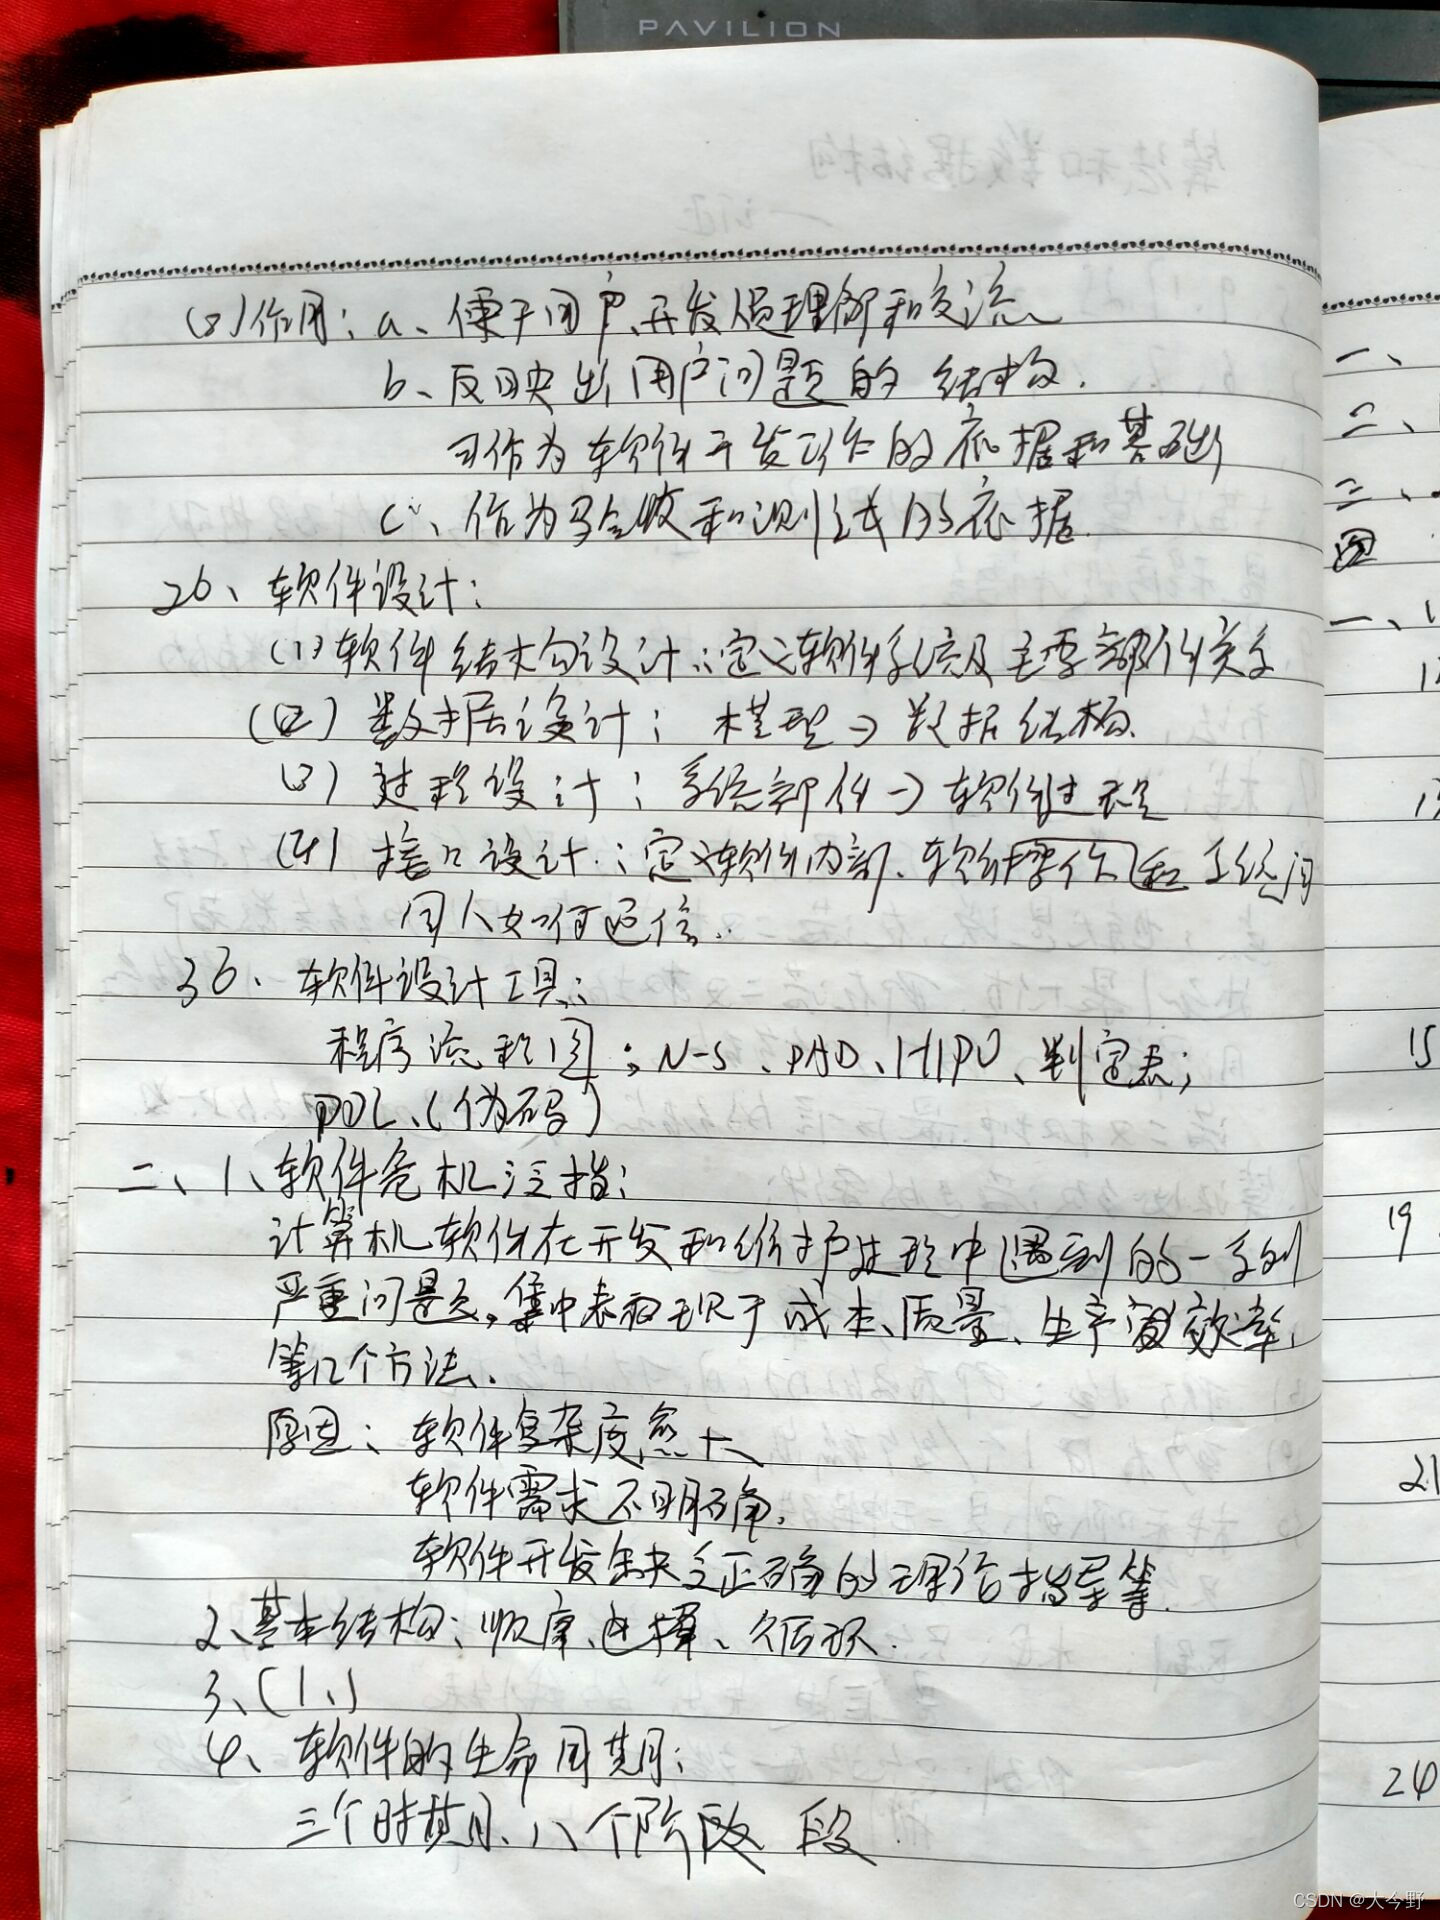 PAVILION
(2)作用：a、便于用户、开发人员理解和交流
b、反映出用户问题的结构.
可作为软件开发工作的依据和基础
c、作为验收和测试的依据.
26、软件设计：
(1)软件结构设计：定义软件系统及主要部件关系
(2)数据设计：模型→数据结构.
(3)过程设计：系统部件→软件过程
(4)接口设计：定义软件内部、软件操作和系统间
同人如何通信.
36、软件设计工具：
程序流程图；N-S、PAD、HIPO、判定表；
PDL、(伪码)
二、1、软件危机泛指：
计算机软件在开发和维护过程中遇到的一系列
严重问题，集中表现于成本、质量、生产效率、
等几个方法.
原因：软件复杂度愈大
软件需求不明确.
软件开发缺乏正确的理论指导等.
2、基本结构：顺序、选择、循环.
3、(1、)
4、软件的生命周期：
三个时期、八个阶段 段.
一、
二、
三、
四
一、
15
19
21
24
CSDN @大今野